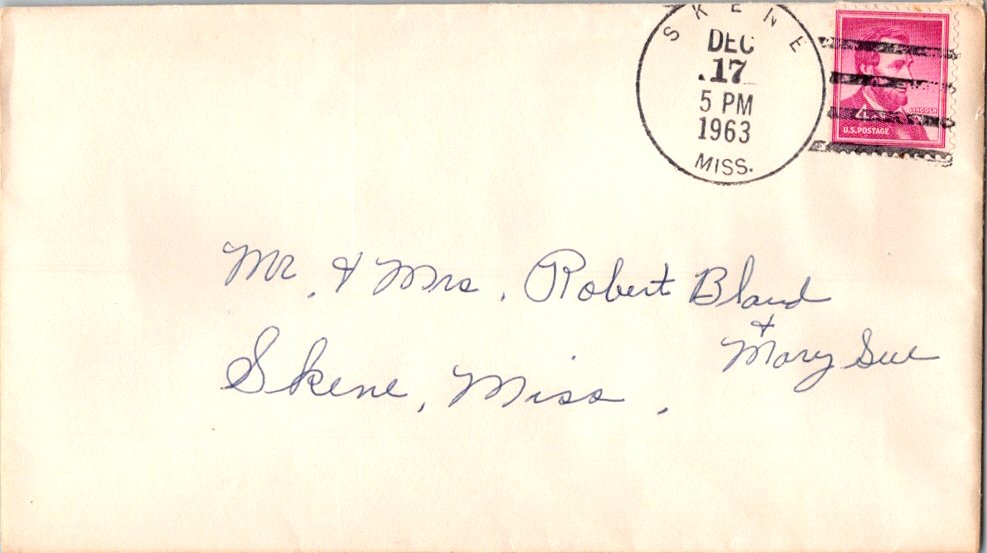 SKENE
DEC
17
5 PM
1963
MISS.
LINCOLN
4¢
U.S. POSTAGE
Mr. & Mrs. Robert Bland
&
Mary Sue
Skene, Miss.